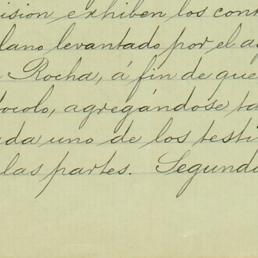 ision exhiben los cont
lano levantado por el a
Rocha, á fin de que
ocolo, agregándose ta
ada uno de los testi
las partes. Segundo